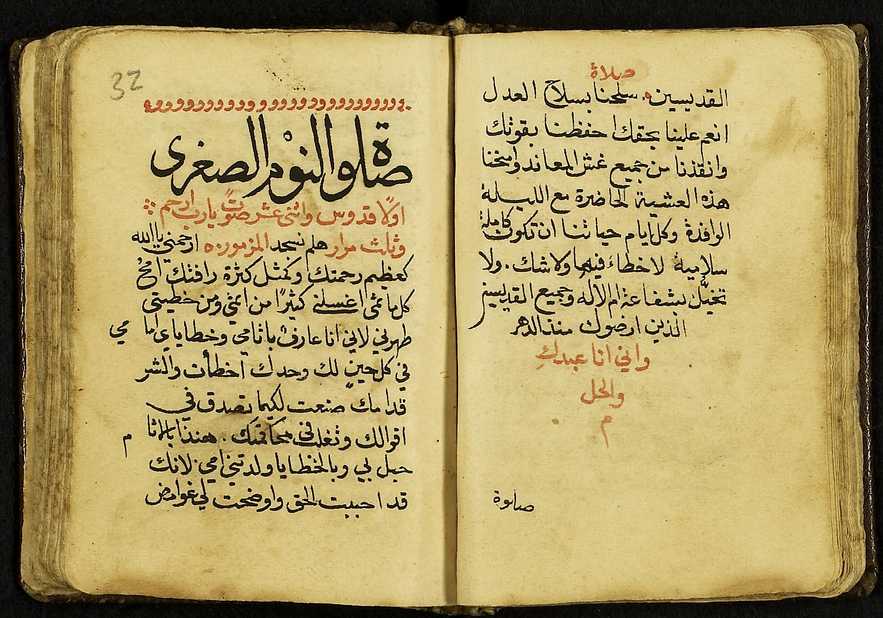 صلاة
القديسين. سلحنا بسلاح العدل
انعم علينا بحقك احفظنا بقوتك
وانقذنا من جميع غش المعاند وامنحنا
هذه العشية الحاضرة مع الليلة
الوافدة وكل ايام حياتنا ان تكون كاملة
سلامية لا خطاء فيها ولا شك. ولا
تخيّل بشفاعة ام الاله وجميع القديسين
الذين ارضوك منذ الدهر
واني انا عبدكِ
والحل
م
صلوة
32
صلوة النوْم الصغرى
اولًا قدوس واثنى عشر صوتً يارب ارحم
وثلث مرار هلم نسجد المزمور ٥٠ ارحمني يا الله
كعظيم رحمتك وكمثل كثرة رافتك امحُ
كل ماثمي اغسلني كثيرًا من اثمي ومن خطيتي
طهرني لاني انا عارف باثامي وخطاياي اما مي
في كل حينٍ لك وحدك اخطأت والشر
قدامك صنعت لكيما تصدق في
اقوالك وتغلب في محاكمتك. هنذا بالاثا م
حبل بي وبالخطايا ولدتني امي لانك
قد احببت الحق واوضحت لي غوامض